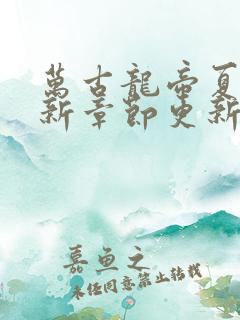 萬古龍帝夏
新章節更新
嘉魚之
未经同意禁止转载